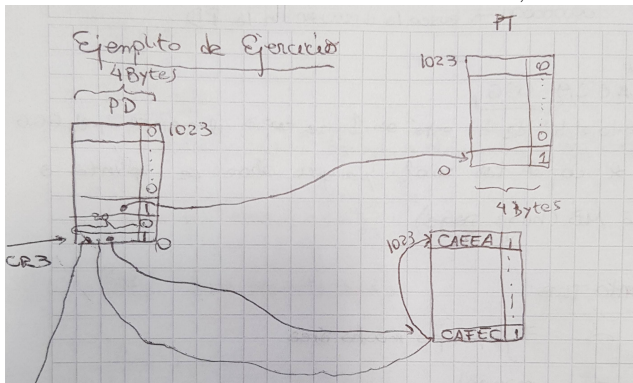 Ejemplito de Ejercicio
4 Bytes
PD
0 1023
0
1
0
1 0
CR3
PT
1023 0
0
0 1
4 Bytes
1023 CAEEA 1
CAFEC 1